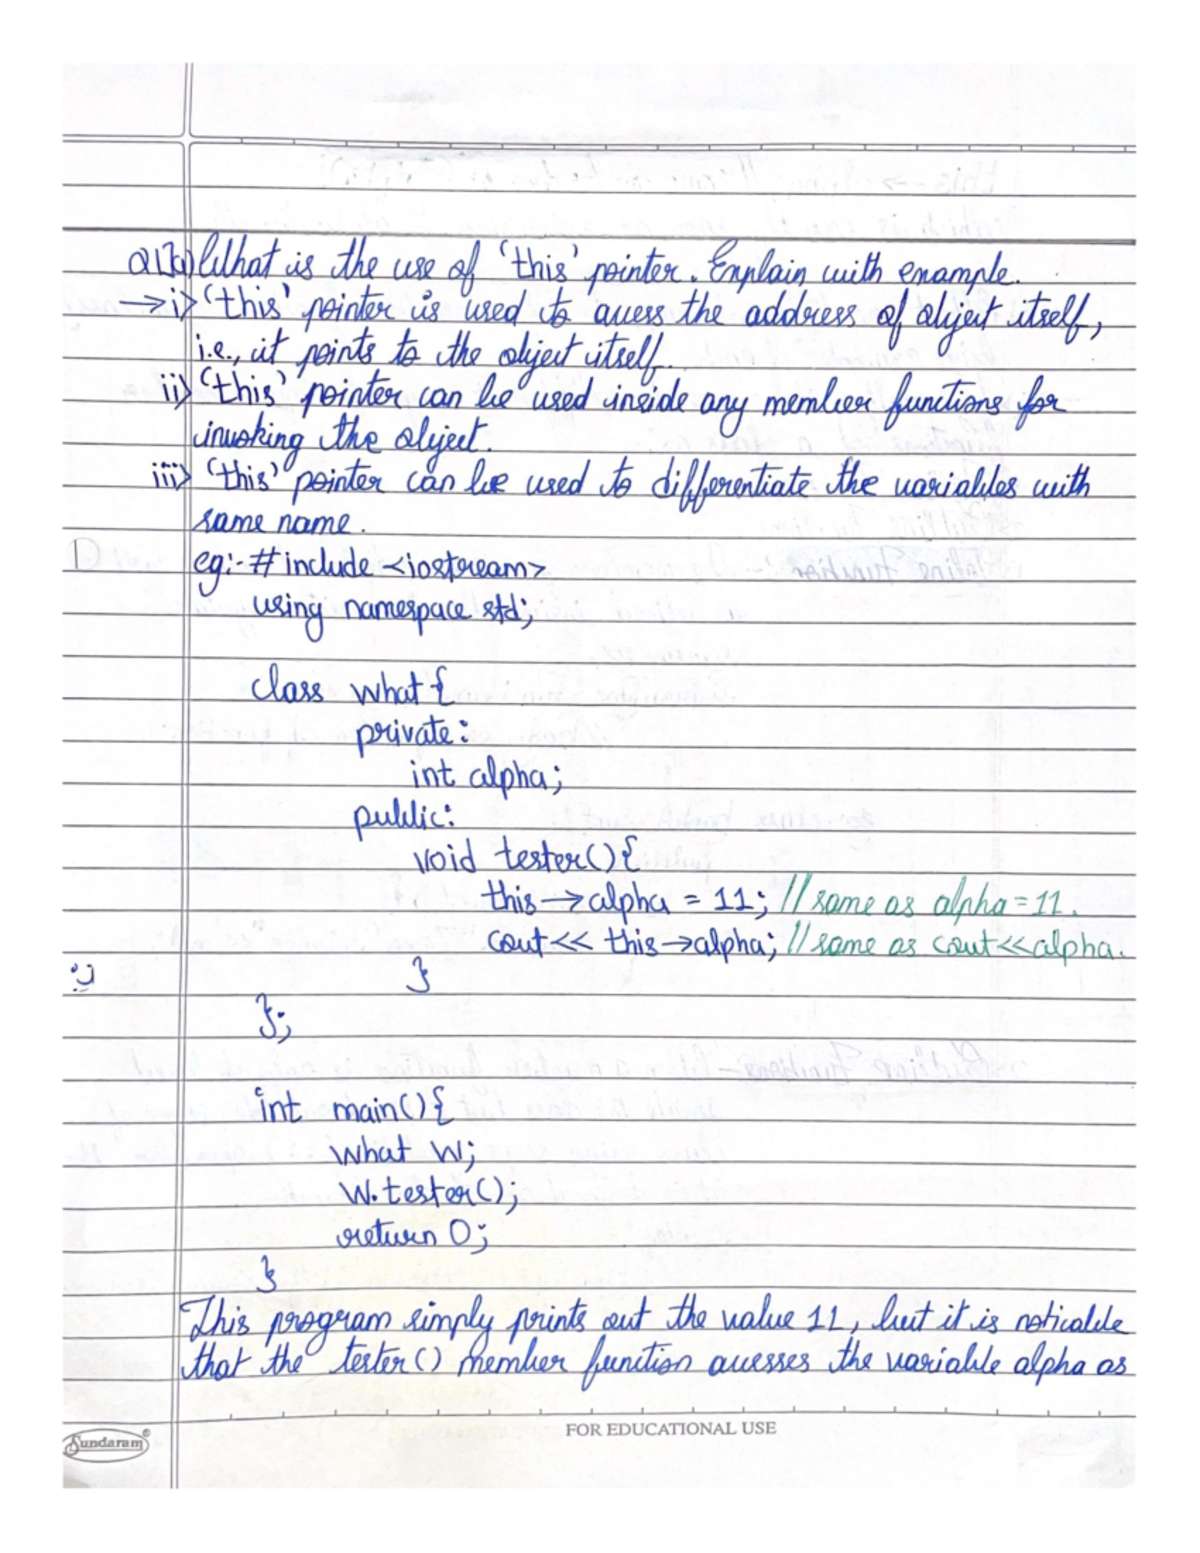 What is the use of 'this' pointer. Explain with example.
→ i) 'this' pointer is used to access the address of object itself,
i.e., it points to the object itself.
ii) 'this' pointer can be used inside any member functions for
invoking the object.
iii) 'this' pointer can be used to differentiate the variables with
same name.
eg:- #include <iostream>
using namespace std;
class what {
private:
int alpha;
public:
void tester(){
this→alpha = 11; // same as alpha=11.
cout<< this→alpha; // same as cout<<alpha.
}
};
int main(){
what W;
W.tester();
return 0;
}
This program simply prints out the value 11, but it is noticable
that the tester() member function accesses the variable alpha as
FOR EDUCATIONAL USE
Sundaram